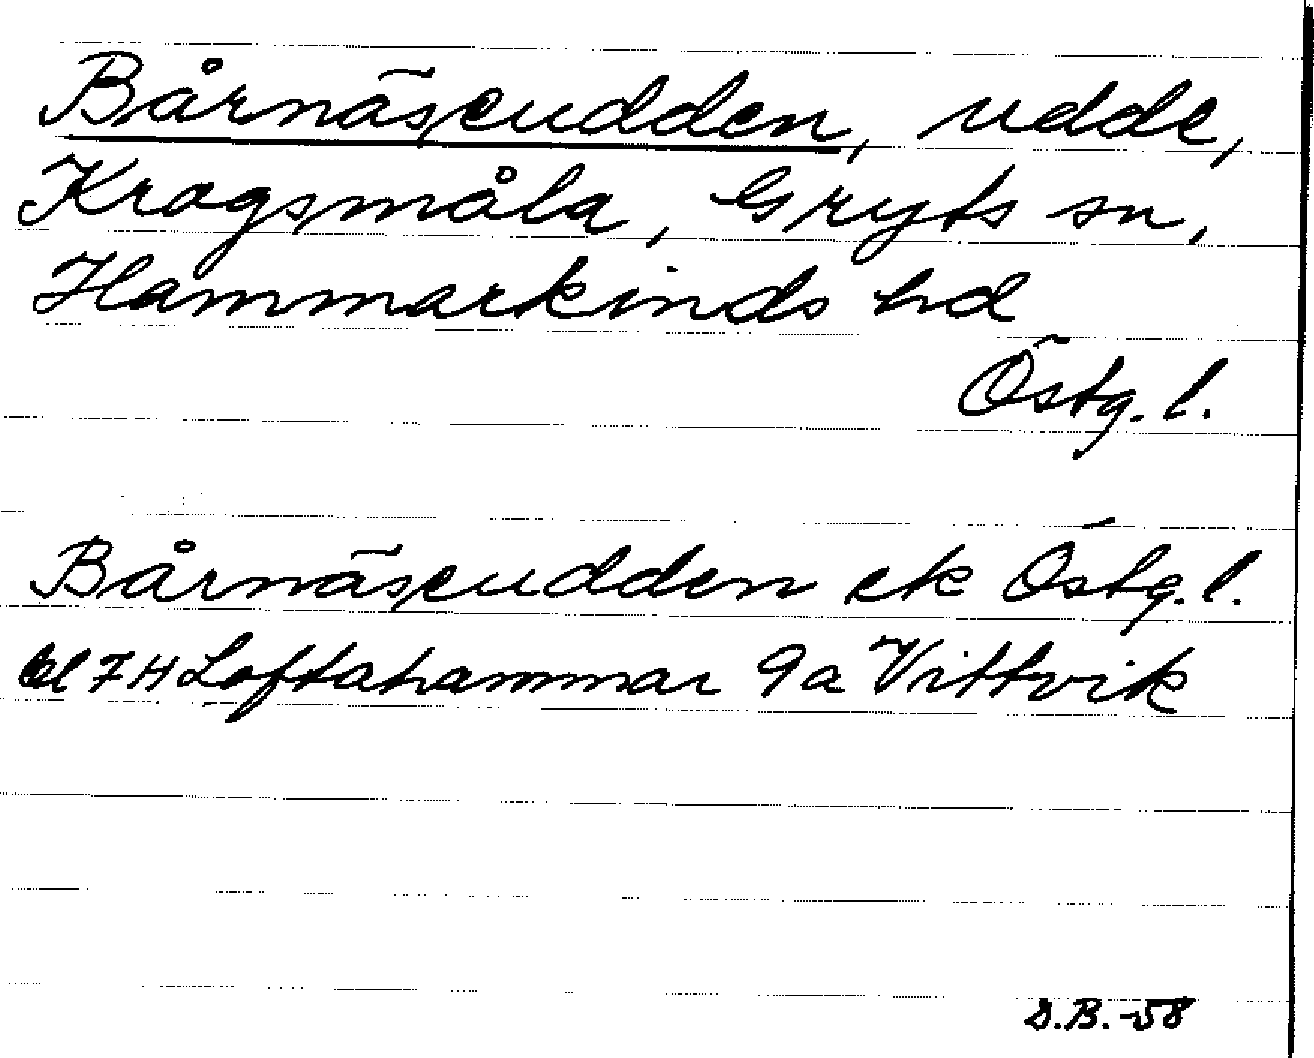 Bårnäseudden, udde,
Krogsmåla, Gryts sn,
Hammarkinds hd
Östg. l.
Bårnäseudden ek Östg. l.
bl 7H Loftahammar 9a Vittvik
D.B.-58